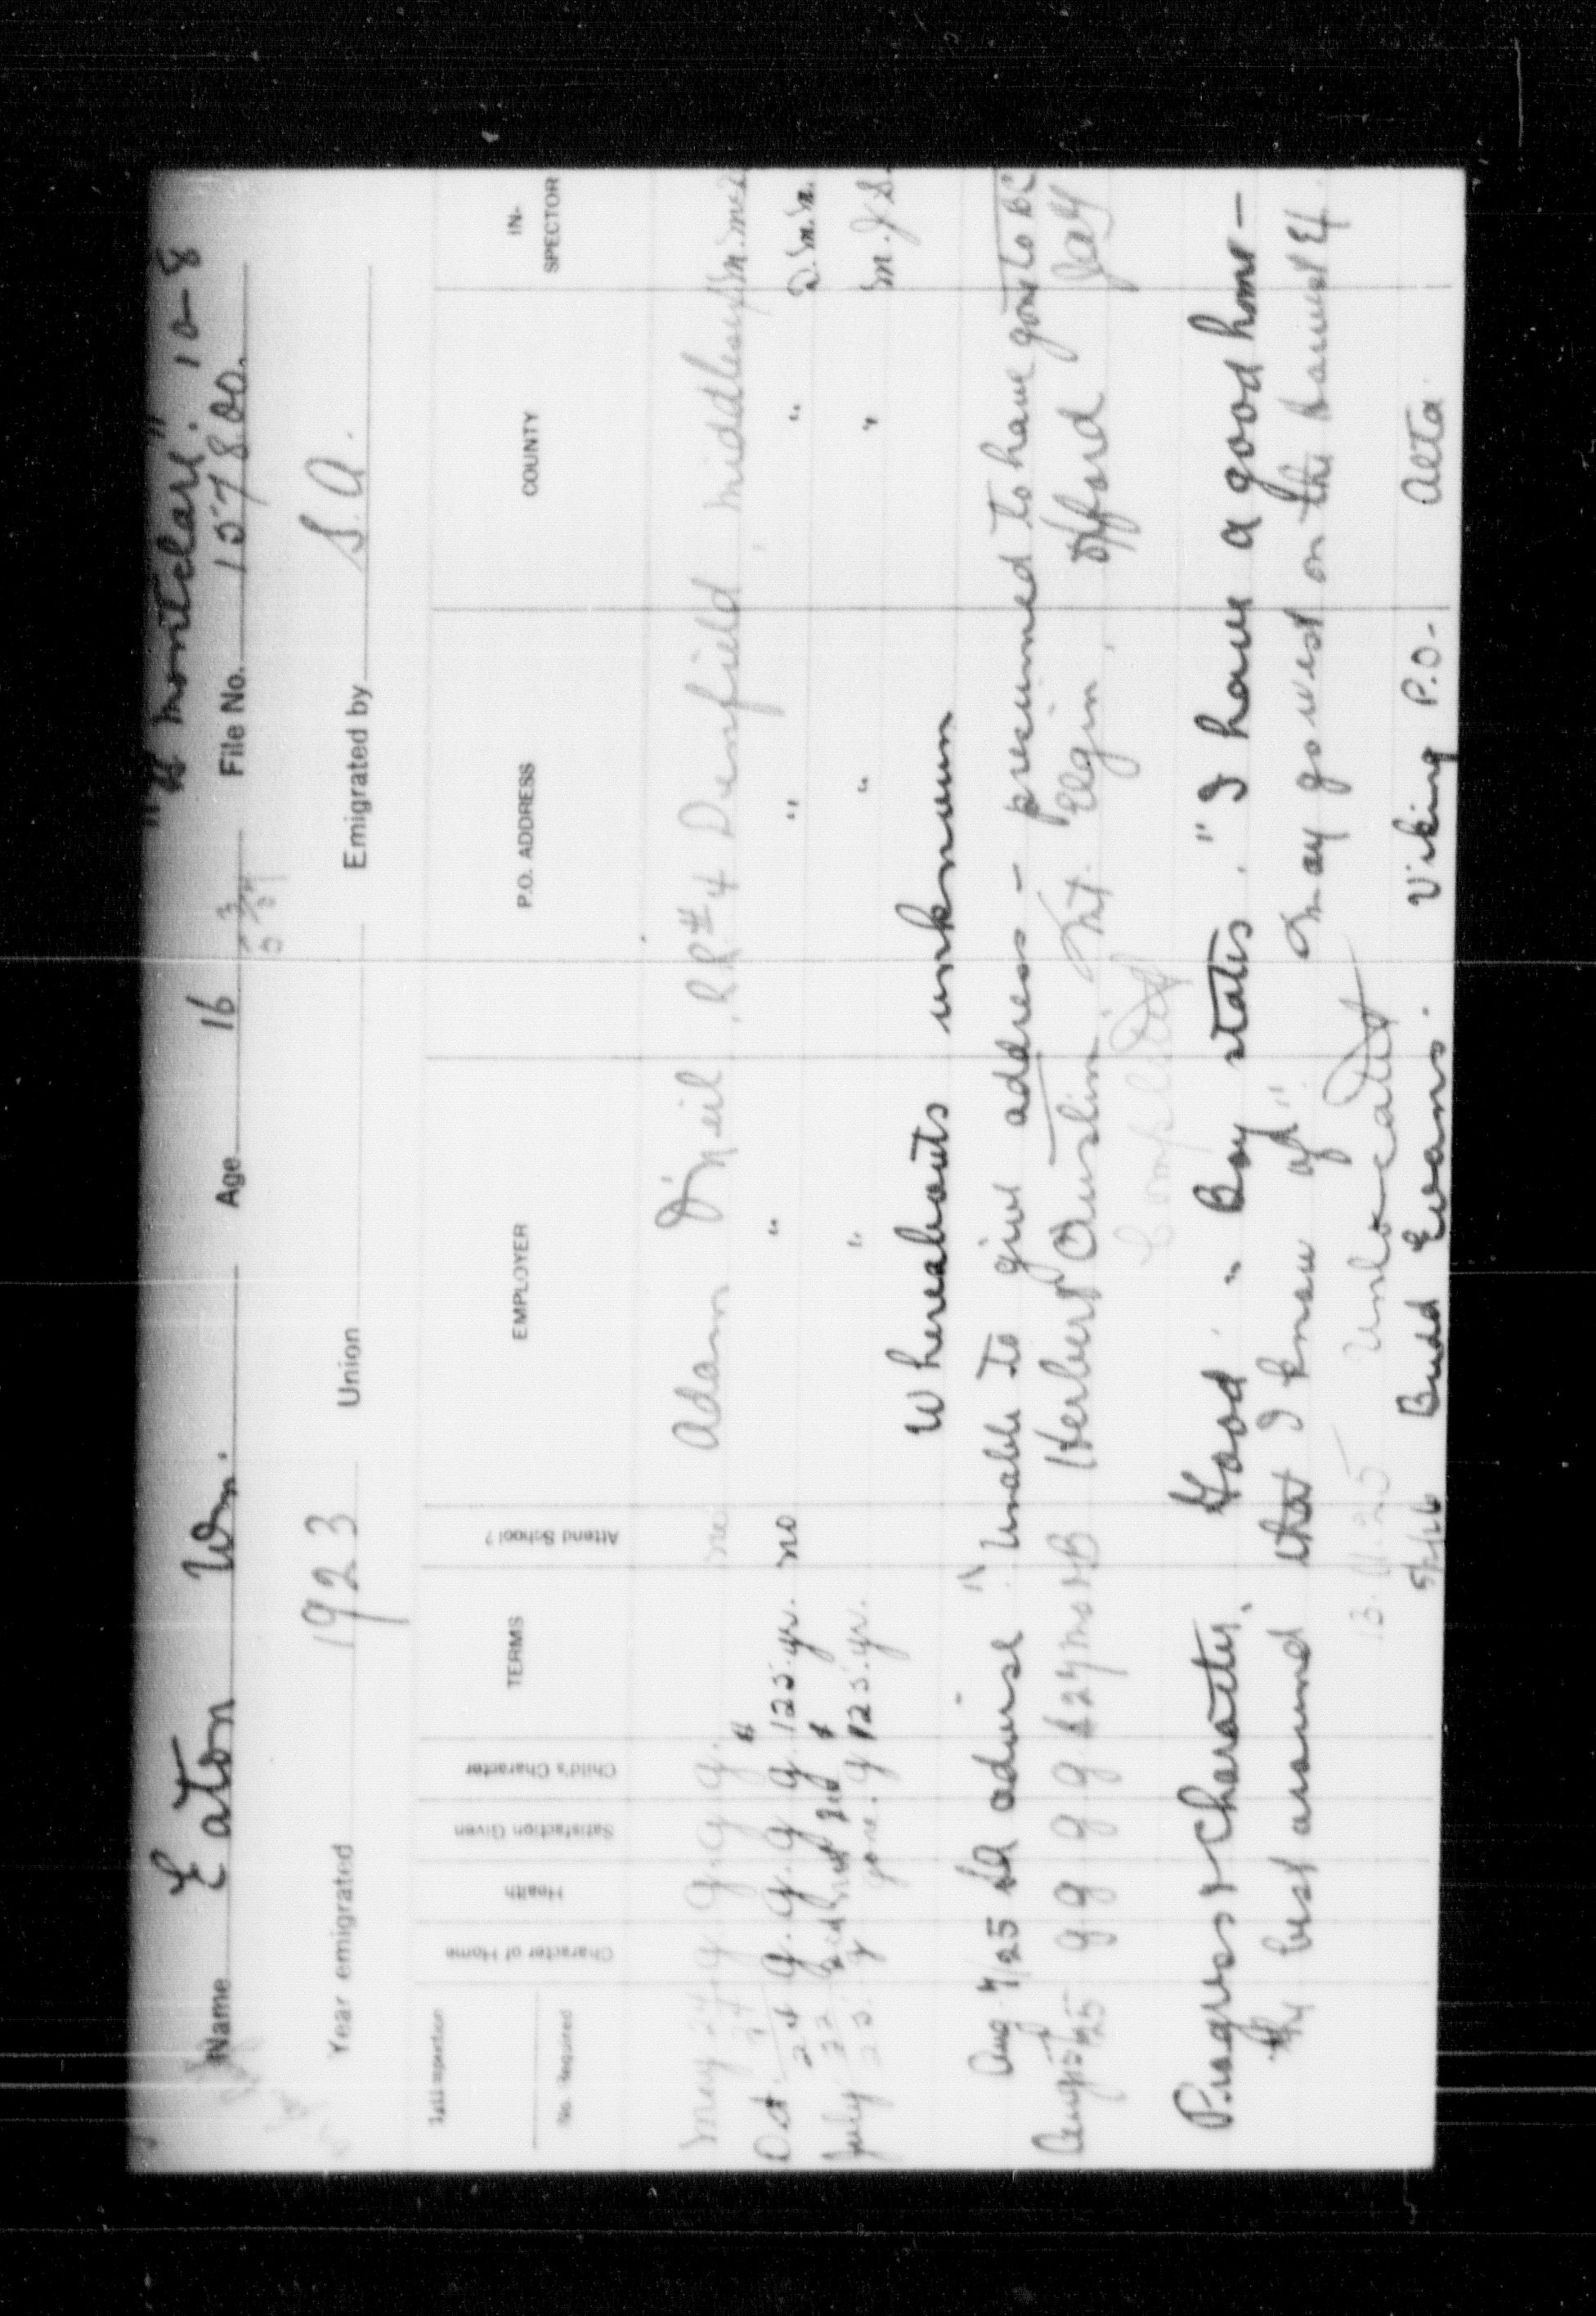 "SS Montclare". 10-8
Name Eaton Wm. Age 16 File No. 157800.
Year emigrated 1923 Union Emigrated by S.A.
Last Inspection
No. Required
Character of Home
Health
Satisfaction Given
Child's Character
TERMS
Attend School?
EMPLOYER
P.O. ADDRESS
COUNTY
IN-
SPECTOR
May 24 g. g. g. g. no Adam O'Neil, RR#4 Denfield, Middlesex
Oct 24 g. g. g. g. $125. yr. no " " " D.M.M.
July 22 25 g gone. g $125. yr. " " " M.J.S.
Whereabouts unknown
Aug 7/25 SA advise "Unable to give address - presumed to have gone to BC
Aug 25 g g g g $27 mo & B Herbert Austin, Mt. Elgin, Oxford
Completed
Progress & Character. Good. " Boy states. " I have a good home -
the best around that I know of" May go west on the Harvest Ex.
Unlocated
Budd Evans. Viking P.O. Alta.